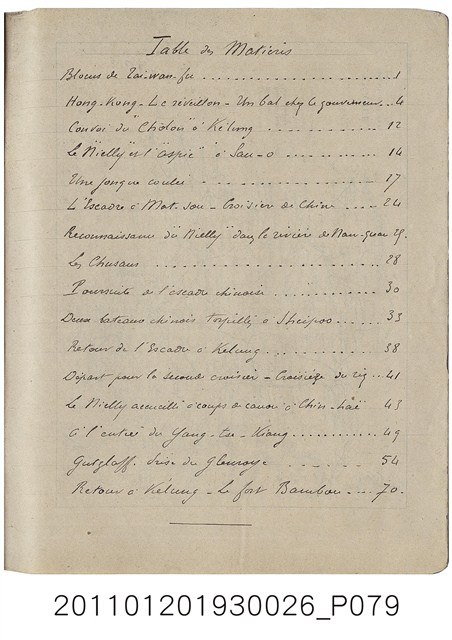 Table des Matières
Blocus de Tai-wan-fu ........ 1
Hong-Kong - Le réveillon - Un bal chez le gouverneur... 4
Convoi du "Cholon" à Kélung ........ 12
Le "Nielly" et l'"aspic" à Sau-o ........ 14
Une jonque coulée ........ 17
L'Escadre à Mat-sou - Croisière de Chine .... 24
Reconnaissance du "Nielly" dans la rivière de Nan-quan 25.
Les Chusans ........ 28
Poursuite de l'escadre chinoise ........ 30
Deux bateaux chinois torpillés à Sheipoo ...... 33
Retour de l'Escadre à Kelung ........ 38
Départ pour la seconde croisière - Croisière du riz ... 41
Le Nielly accueilli à coups de canon à Chin-haë 43
A l'entrée du Yang-tse-Kiang ........ 49
Gutzlaff. Prise du Glenroye ........ 54
Retour à Kélung - Le fort Bambou .... 70.
201101201930026_P079